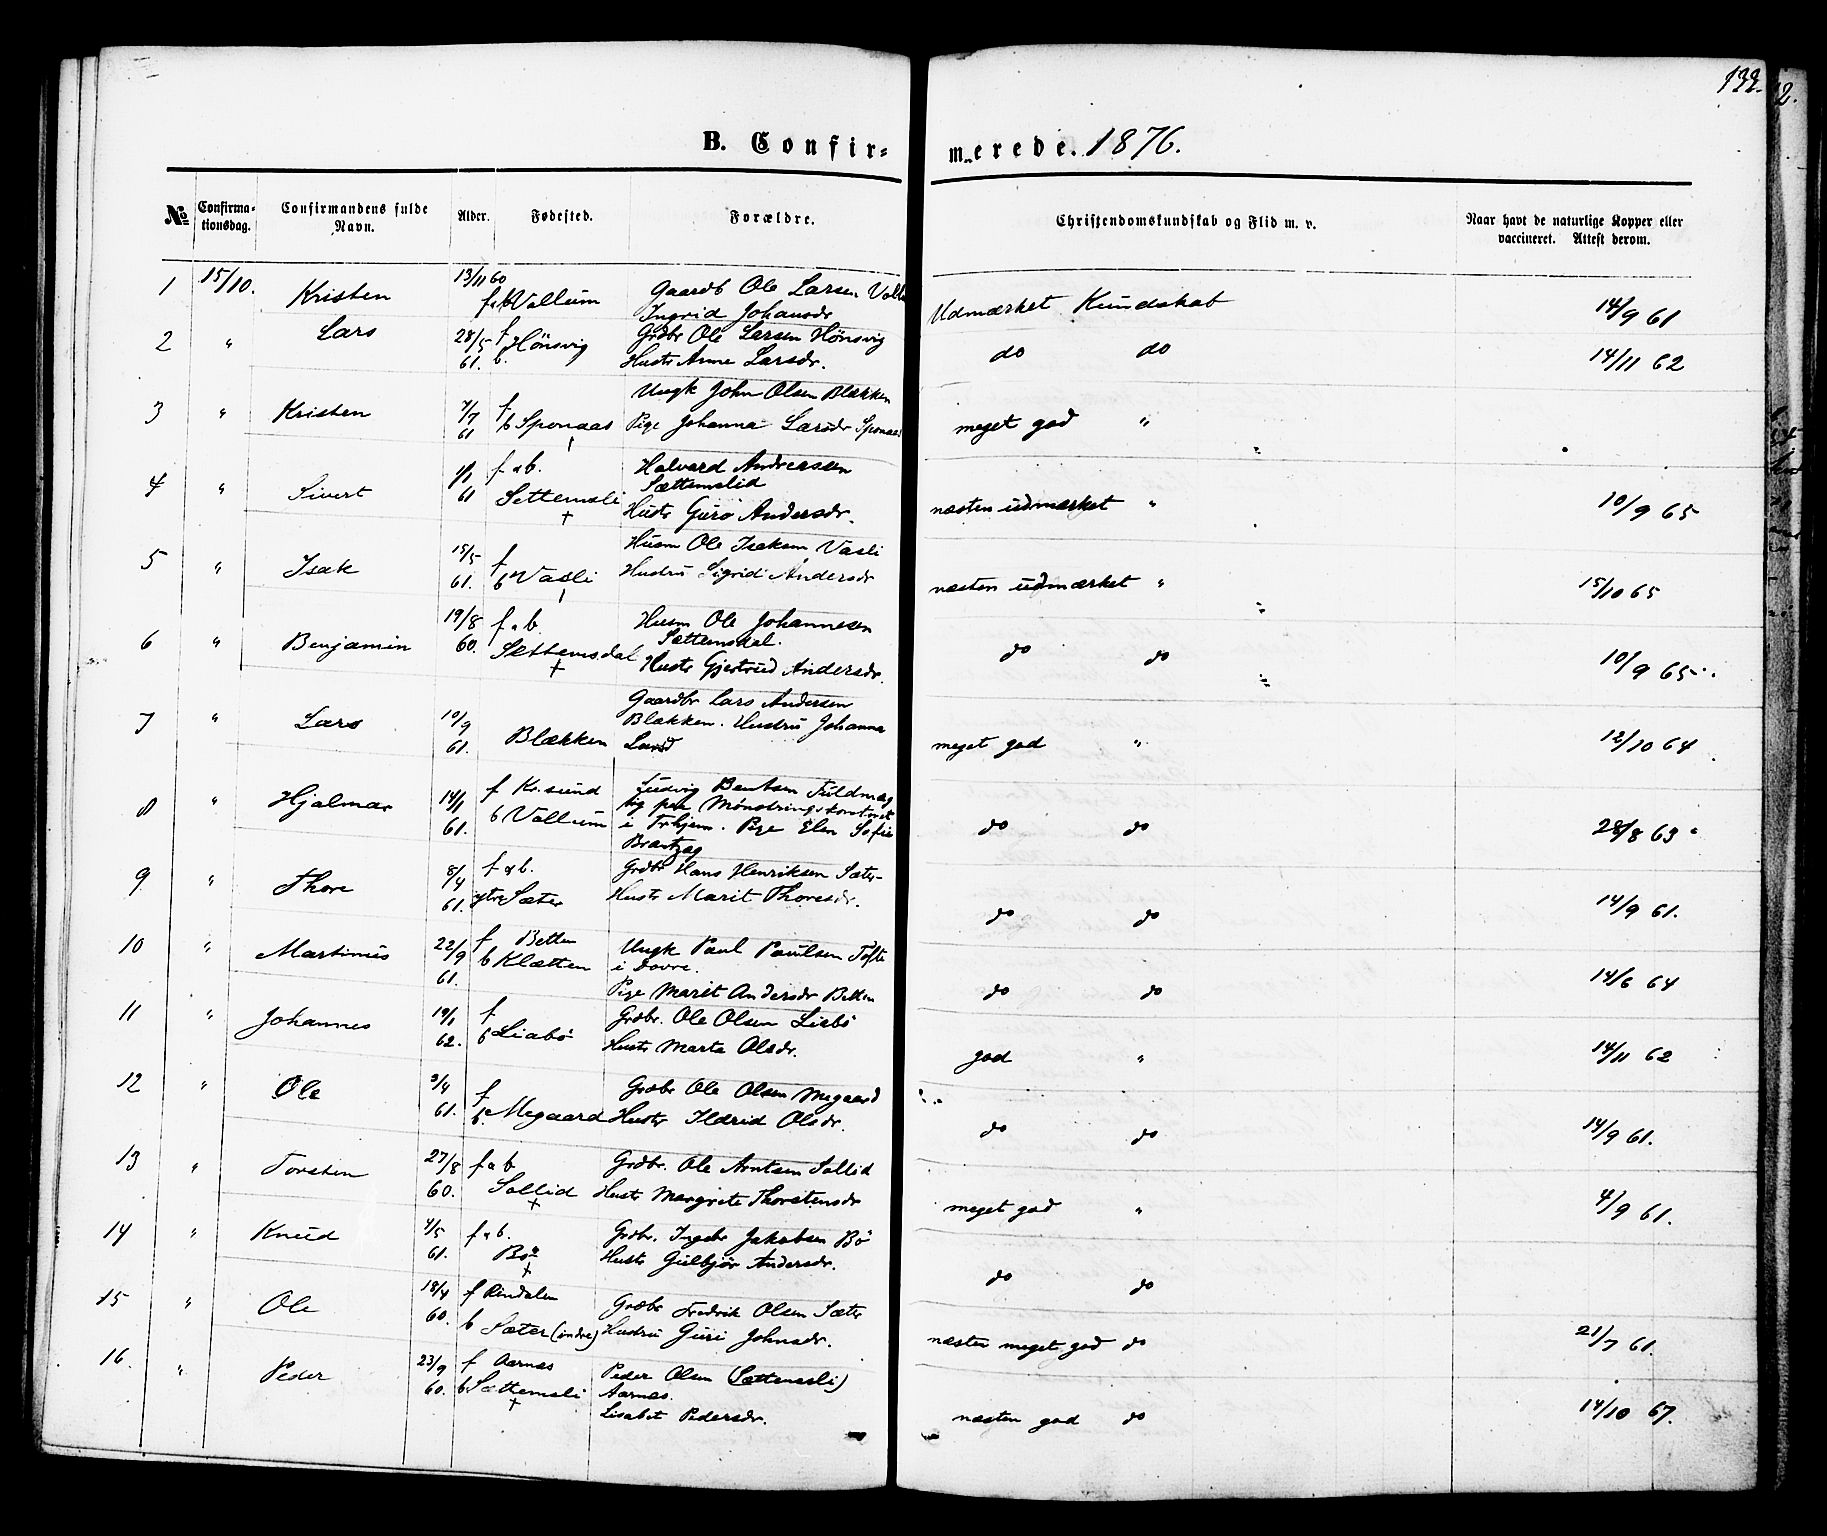 132.
2.
B. Confir= merede. 1876.
No Confirma=tionsdag. Confirmandens fulde Navn. Alder. Fødested. Forældre. Christendomskundskab og Flid m. v. Naar havt de naturlige Kopper eller vaccineret. Attest derom.
1 15/10. Kristen 13/11 60 f. b. Vollum Gaardb Ole Larsen
Ingrid Johansdr Udmærket Kundskab 14/9 61
2 " Lars 28/5 61. f b. Hönsvig Grdbr Ole Larsen Hönsvig
Hustr Anne Larsdr. do do 14/11 62
3 " Kristen 7/7 61 f b Sponaas Ungk John Olsen Blækken
Pige Johanna Larsdr Sponaas meget god "
4 " Sivert 1/1 61 f. & b. Settemsli + Halvard Anderssen
Sættemslid
Hustr Guro Andersdr. næsten udmærket " 10/9 65
5 " Isak 15/5 61. f b Vasli Husm Ole Isaksen Vasli
Hustru Sigrid Andersdr næsten udmærket " 15/10 65
6 " Benjamin 19/8 60. f & b. Settemsdal + Husm Ole Johannesen
Sættemsdal.
Hustr Gjertrud Andersdr. do do 10/9 65
7 " Lars 10/9 61. Blækken Gaardbr Lars Andersen
Blækken. Hustru Johanna
Larsd meget god " 12/10 64
8 " Hjalmar 14/1 61. f Kr.sund b Vollum Ludvig Bentsen Fuldmæg
tig paa Mønstringskontoret
i Trhjem. Pige Elen Sofie
do do 28/8 63
9 " Thore 8/4 61. f & b. ytre Sæter Grdbr Hans Henriksen Sæter
Hustr Marit Thoresdr. do do 14/9 61.
10 " Martinus 22/9 61. f Betten b Klætten Ungk Paul Paulsen Tofte
i Dovre.
Pige Marit Andersdr Betten do do 14/6 64
11 " Johannes 19/1 62. f b Liabö Grdbr. Ole Olsen Liabö
Hustr Marta Olsdr. god " 14/11 62
12 " Ole 3/4 61. f b. Megaard Grdbr Ole Olsen Megaard
Hustr Ildrid Olsdr. do do 14/9 61.
13 " Torsten 27/8 60. f & b Sollid + Grdbr. Ole Arntsen Sollid
Hustr Margrete Thorstensdr meget god " 4/9 61.
14 " Knud 4/5 61. f & b. Bö + Grdbr. Ingebr Jakobsen Bö
Hustr Gulbjör Andersdr. do do
15 " Ole 18/4 60. f Rindalen b Sæter (indre) Grdbr Fredrik Olsen Sæter
Hustru Guri Johnsdr. næsten meget god do 21/7 61.
16. " Peder 23/9 60. f Aarnæs b Sættemsli + Peder Olsen (Sættemsli)
Aarnæs.
Lisabet Pedersdr. næsten god do 14/10 67.